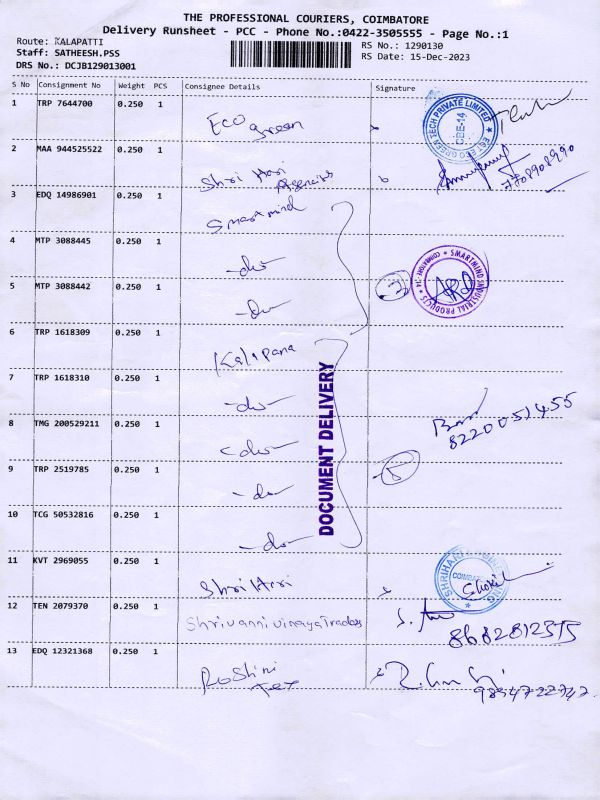 THE PROFESSIONAL COURIERS, COIMBATORE
Delivery Runsheet - PCC - Phone No.:0422-3505555 - Page No.:1
Route: KALAPATTI
RS No.: 1290130
Staff: SATHEESH.PSS
RS Date: 15-Dec-2023
DRS No.: DCJB129013001
S No Consignment No Weight PCS Consignee Details Signature
1 TRP 7644700 0.250 1 Eco green
2 MAA 944525522 0.250 1 Shri Hari Agencies
7708908990
3 EDQ 14986901 0.250 1 Smart mind
4 MTP 3088445 0.250 1 -do-
5 MTP 3088442 0.250 1 -do-
3
SMARTMIND INDUSTRIAL PRODUCTS * COIMBATORE-14 *
6 TRP 1618309 0.250 1 Kalipana
7 TRP 1618310 0.250 1 -do-
8 TMG 200529211 0.250 1 -do-
8220051455
9 TRP 2519785 0.250 1 -do-
5
10 TCG 50532816 0.250 1 -do-
DOCUMENT DELIVERY
11 KVT 2969055 0.250 1 Shri Hari
SHRIHARI
12 TEN 2079370 0.250 1 Shrivanni vinayaTrades
8682812575
13 EDQ 12321368 0.250 1 Roshini Tex